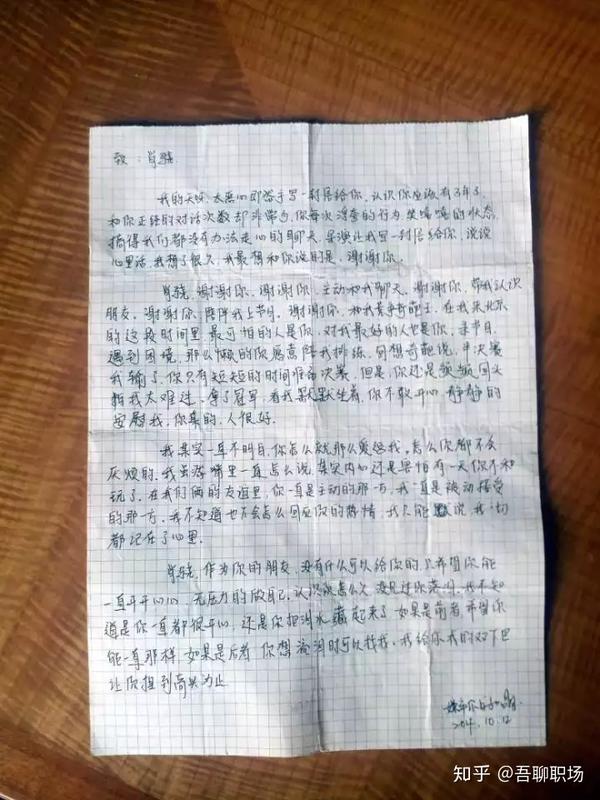 致:肖骁
我的天呐,太恶心即答于写一封信给你,认识你应该有3年了
和你正经的对话次数却非常少,你每次浮夸的行为,笑嘻嘻的状态
搞得我们都没有办法走心的聊天,导演让我写一封信给你,谈谈
心里话,我想了很久,我最想和你说的是,谢谢你。
肖骁,谢谢你,谢谢你,主动和我聊天,谢谢你,带我认识
朋友,谢谢你,陪伴我上节目,谢谢你,和我竞争奇葩王,在我来北京
的这段时间里,最可怕的人是你,对我最好的人也是你,录节目
遇到困境,那么懒的你愿意陪我排练,回想奇葩说,半决赛
我输了,你只有短短的时间准备决赛,但是,你还是频频回头
怕我太难过,拿了冠军,看我默默坐着,你不敢开心,静静的
安慰我,你真的,人很好。
我其实一直不明白,你怎么就那么爱逗我,怎么你都不会
厌烦的,我虽然嘴里一直怎么说,其实内心还是害怕有一天你不和
玩了,在我们俩的友谊里,你一直是主动的那一方,我一直是被动接受
的那一方,我不知道也不会怎么回应你的热情,我只能默说,我一切
都记在了心里。
肖骁,作为你的朋友,没有什么可以给你的,只希望你能
一直开开心心,无压力的做自己,认识你怎么久,没见过你落泪,我不知
道是你一直都很开心,还是你把泪水藏起来了,如果是前者,希望你
能一直那样,如果是后者,你想流泪时可以找我,我给你我的双下巴
让你捏到高兴为止
2014.10.12
知乎 @吾聊职场